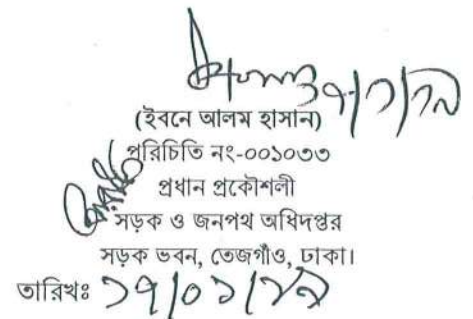 (ইবনে আলম হাসান)
পরিচিতি নং-০০১০৩৩
প্রধান প্রকৌশলী
সড়ক ও জনপথ অধিদপ্তর
সড়ক ভবন, তেজগাঁও, ঢাকা।
তারিখঃ ১৭/০১/১৯